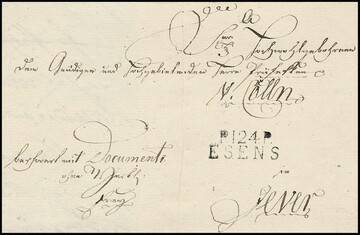 Hochwohlgebohren
den Gnädigen und Hochgebietenden Herrn Präfekten
v. Cölln
P.124.P.
ESENS
beschwert mit Documente
ohne Werth
in
Jever